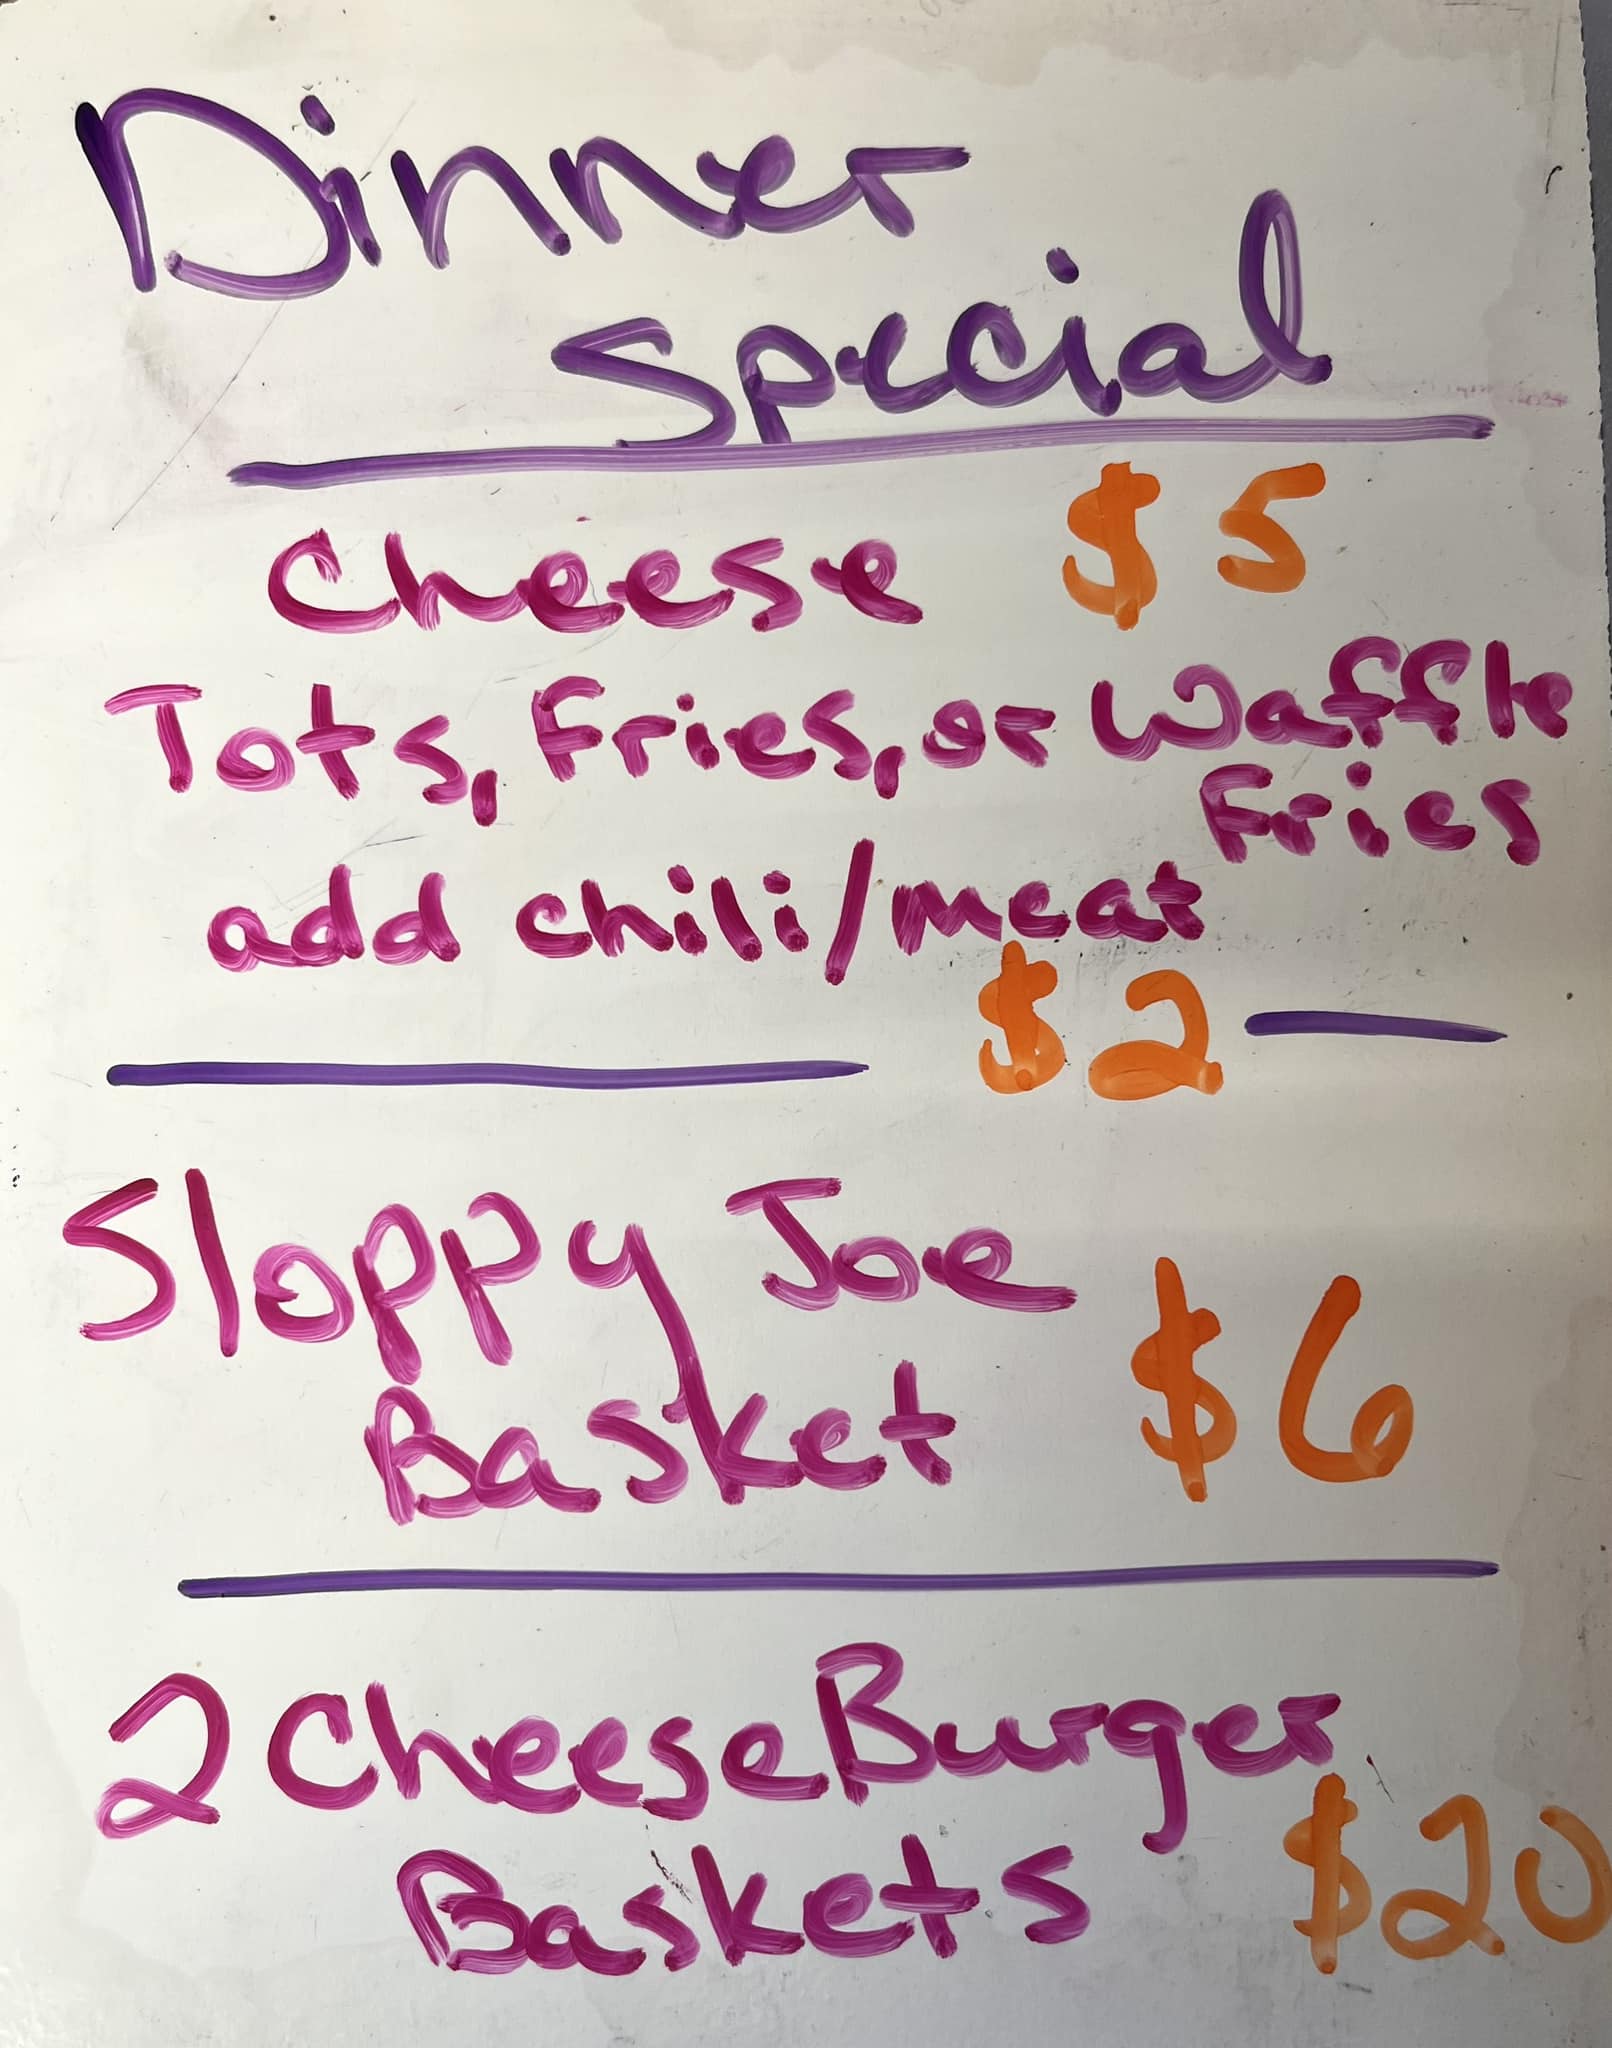 Dinner
Special
Cheese $5
Tots, Fries, or Waffle
Fries
add chili/meat
$2
Sloppy Joe
Basket $6
2 CheeseBurger
Baskets $20